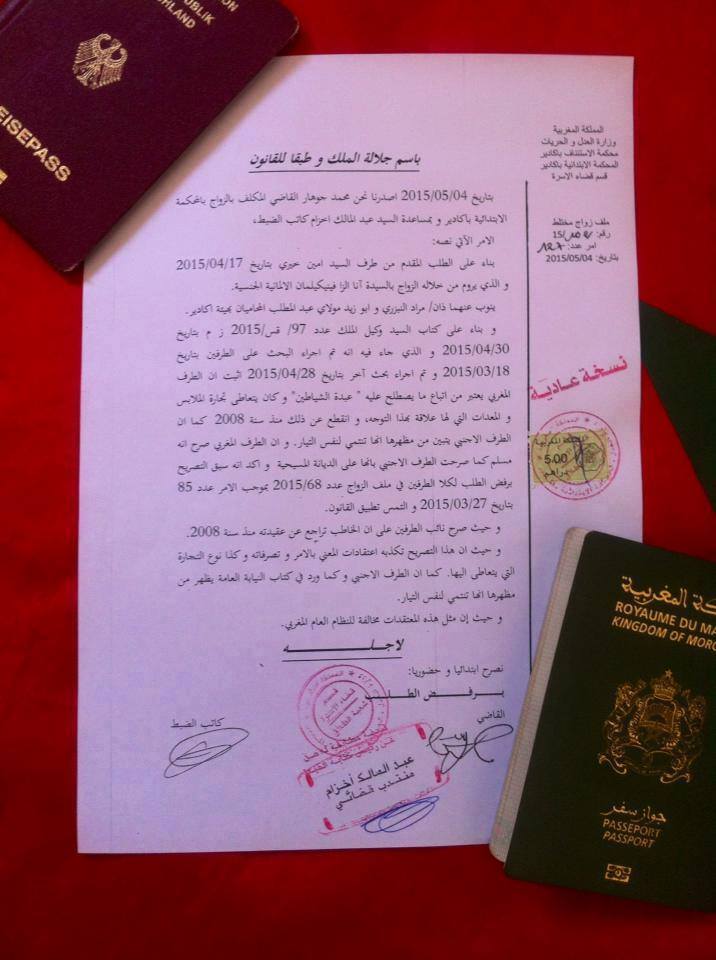 UNION
REPUBLIK
DEUTSCHLAND
REISEPASS
المملكة المغربية
وزارة العدل و الحريات
محكمة الاستئناف باكادير
المحكمة الابتدائية باكادير
قسم قضاء الاسرة
ملف زواج مختلط
رقم: 15/
امر عدد:
بتاريخ: 2015/05/04
باسم جلالة الملك و طبقا للقانون
بتاريخ 2015/05/04 اصدرنا نحن محمد جوهار القاضي المكلف بالزواج بالمحكمة
الابتدائية باكادير و بمساعدة السيد عبد المالك اخزام كاتب الضبط،
الامر الآتي نصه:
بناء على الطلب المقدم من طرف السيد امين خيري بتاريخ 2015/04/17
و الذي يروم من خلاله الزواج بالسيدة آنا الزا فينيكيلمان الالمانية الجنسية.
ينوب عنهما ذان/ مراد النيزري و ابو زيد مولاي عبد المطلب المحاميان بهيئة اكادير.
و بناء على كتاب السيد وكيل الملك عدد 97/ قس/2015 ز م بتاريخ
2015/04/30 و الذي جاء فيه انه تم اجراء البحث على الطرفين بتاريخ
2015/03/18 و تم اجراء بحث آخر بتاريخ 2015/04/28 اثبت ان الطرف
المغربي يعتبر من اتباع ما يصطلح عليه " عبدة الشياطين" و كان يتعاطى تجارة الملابس
و المعدات التي لها علاقة بهذا التوجه، و انقطع عن ذلك منذ سنة 2008 كما ان
الطرف الاجنبي يتبين من مظهرها انها تنتمي لنفس التيار. و ان الطرف المغربي صرح انه
مسلم كما صرحت الطرف الاجنبي بانها على الديانة المسيحية و اكد انه سبق التصريح
برفض الطلب لكلا الطرفين في ملف الزواج عدد 2015/68 بموجب الامر عدد 85
بتاريخ 2015/03/27 و التمس تطبيق القانون.
و حيث صرح نائب الطرفين على ان الخاطب تراجع عن عقيدته منذ سنة 2008.
و حيث ان هذا التصريح تكذبه اعتقادات المعني بالامر و تصرفاته و كذا نوع التجارة
التي يتعاطى اليها. كما ان الطرف الاجنبي و كما ورد في كتاب النيابة العامة يظهر من
مظهرها انها تنتمي لنفس التيار.
و حيث إن مثل هذه المعتقدات مخالفة للنظام العام المغربي.
لاجلـــــــه
نصرح ابتدائيا و حضوريا:
بـرفـــض الطـــلـــب
القاضي
كاتب الضبط
نسخة عادية
المملكة المغربية
5.00
دراهم
قسم
قضاء الاسرة
عبد المالك أخزام
منتدب قضائي
المملكة المغربية
ROYAUME DU MA
KINGDOM OF MORO
جواز سفر
PASSEPORT
PASSPORT